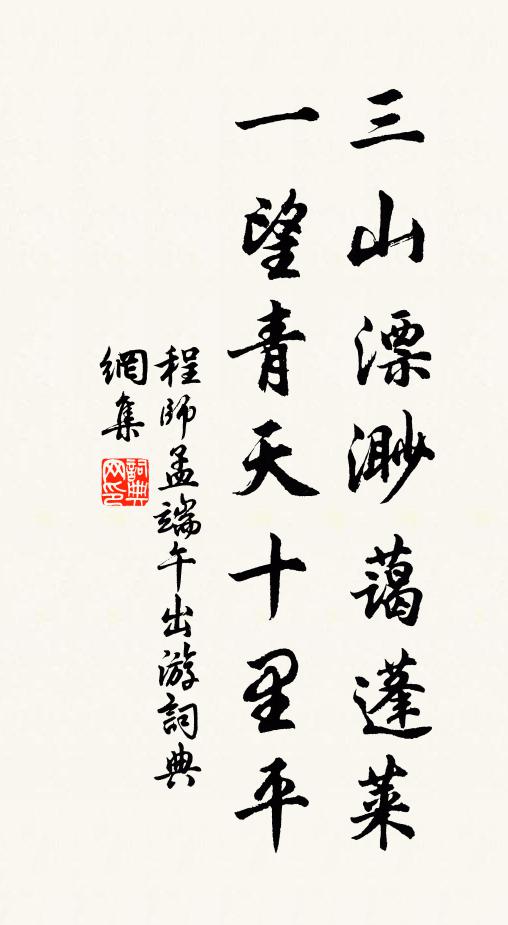 三山漂渺藹蓬萊
一望青天十里平
程師孟端午出游詞典
網集
詞典网印